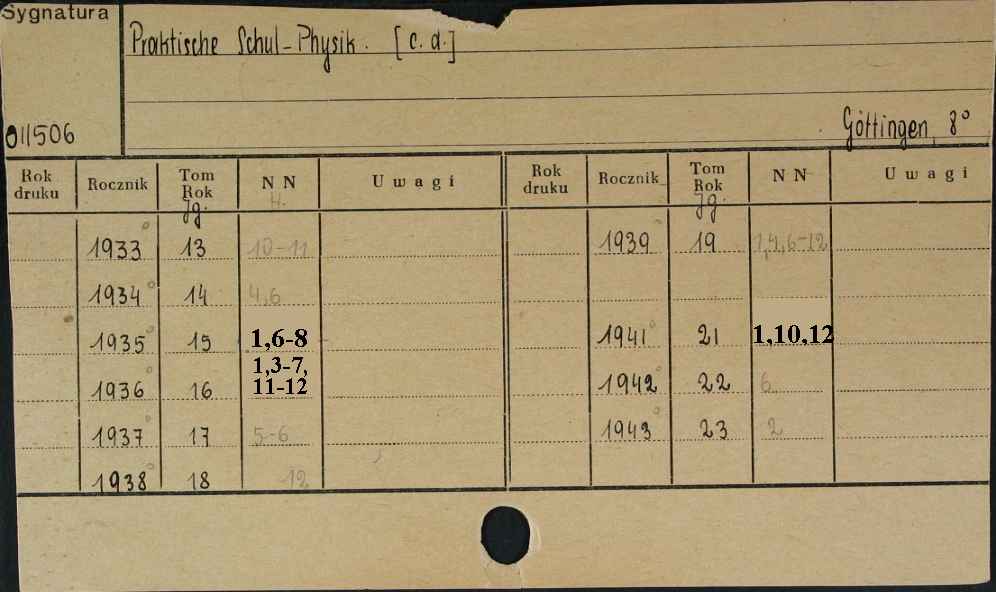 Sygnatura
Praktische Schul-Physik. [c. d.]
011506
Göttingen, 8°
Rok druku Rocznik Tom Rok Jg. NN H. Uwagi Rok druku Rocznik Tom Rok Jg. NN Uwagi
1933° 13 10-11 1939° 19 1,4,6-12
1934° 14 4,6
1935° 15 1,6-8 1941° 21 1,10,12
1936° 16 1,3-7, 11-12 1942° 22 6
1937° 17 5-6 1943° 23 2
1938° 18 12